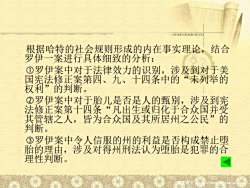 根据哈特的社会规则形成的内在事实理论，结合
罗伊一案进行具体细致的分析：
①罗伊案中对于法律效力的识别，涉及到对于美
国宪法修正案第四、九、十四条中的“未列举的
权利”的判断。
②罗伊案中对于胎儿是否是人的甄别，涉及到宪
法修正案第十四条“凡出生或归化于合众国并受
其管辖之人，皆为合众国及其所居州之公民”的
判断。
③罗伊案中令人信服的州的利益是否构成禁止堕
胎的理由，涉及对得州刑法认为堕胎是犯罪的合
理性判断。